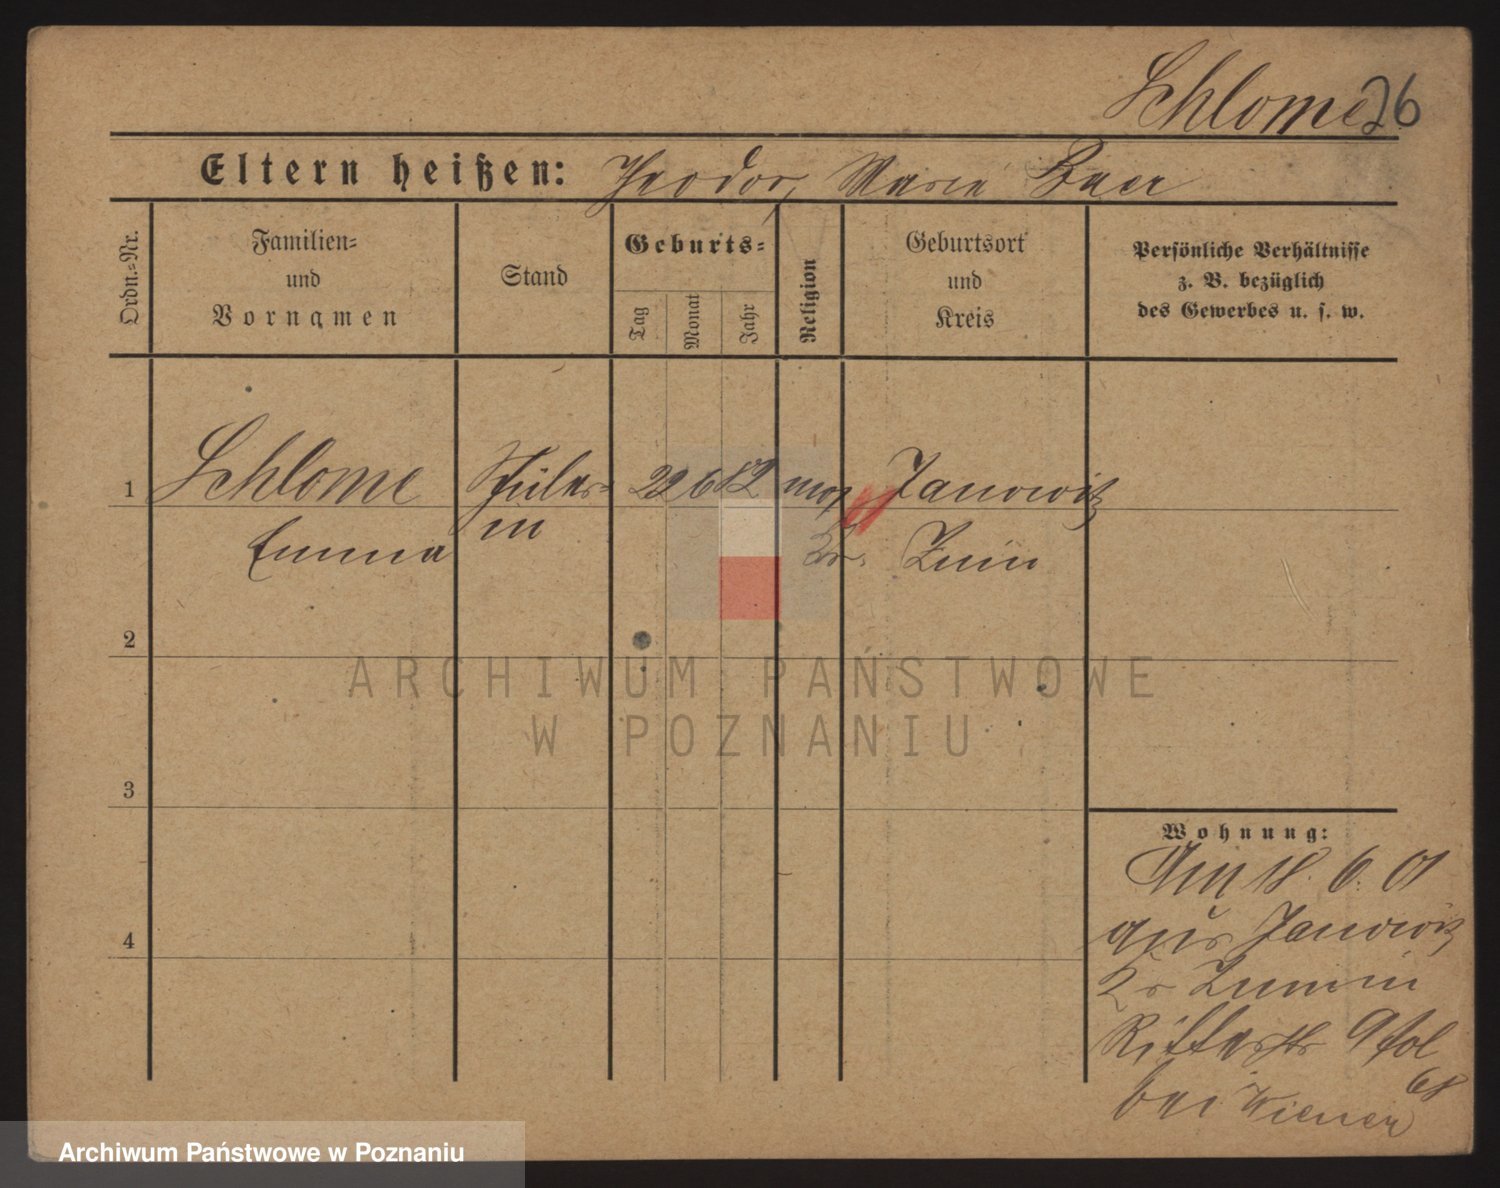 Schlome 26
Eltern heißen: Theodor, Marie Baer
Ordn.-Nr.
Familien- und Vornamen
Stand
Geburts-
Tag
Monat
Jahr
Religion
Geburtsort und Kreis
Persönliche Verhältnisse
z. B. bezüglich
des Gewerbes u. s. w.
1 Schlome Schüler- 22 6 82 mos Janowitz
Emma in Kr. Znin
2
3
4
Wohnung:
18. 6. 01
aus Janowitz
Kr
Ritterstr 9 fol
68
bei Wiener
ARCHIWUM PAŃSTWOWE
W POZNANIU
Archiwum Państwowe w Poznaniu